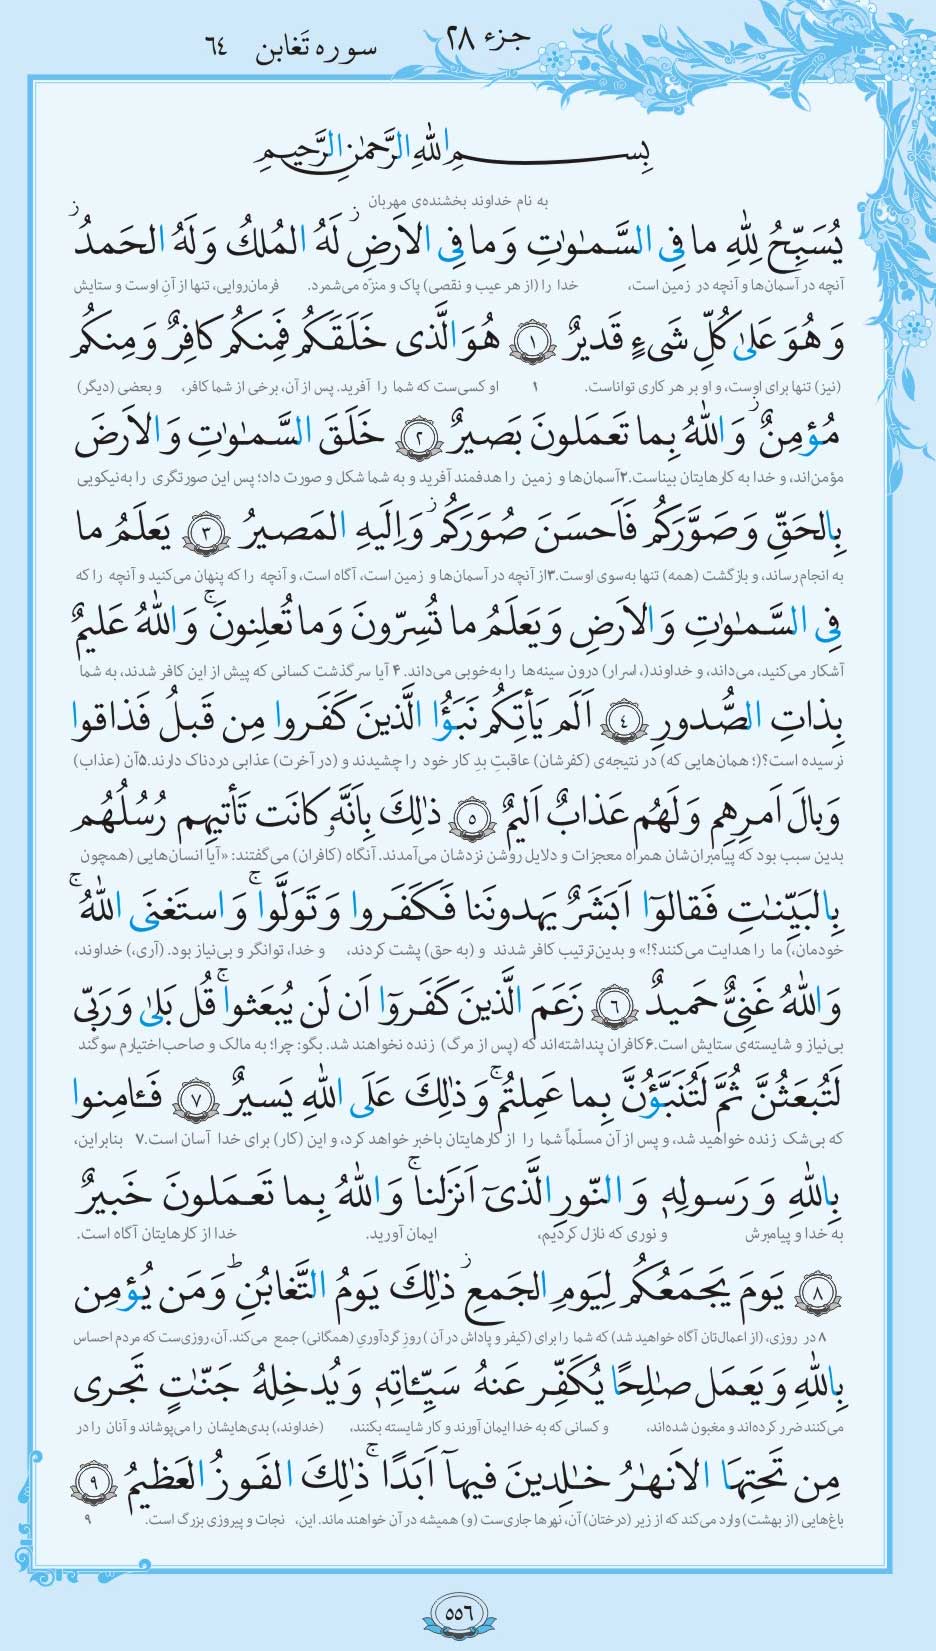 جزء ۲۸
سوره تَغابن ٦٤
بِسمِ اللهِ الرَّحمٰنِ الرَّحیمِ
به نام خداوند بخشنده‌ی مهربان
یُسَبِّحُ لِلّٰهِ ما فِی السَّمـٰوٰتِ وَ ما فِی الاَرضِ ۖ لَهُ المُلکُ وَ لَهُ الحَمدُ ۖ
آنچه در آسمان‌ها و آنچه در زمین است، خدا را (از هر عیب و نقصی) پاک و منزّه می‌شمرد. فرمان‌روایی، تنها از آنِ اوست و ستایش
وَ هُوَ عَلیٰ کُلِّ شَیءٍ قَدیرٌ ﴿۱﴾ هُوَ الَّذی خَلَقَکُم فَمِنکُم کافِرٌ وَ مِنکُم
(نیز) تنها برای اوست، و او بر هر کاری تواناست. ۱ او کسی‌ست که شما را آفرید. پس از آن، برخی از شما کافر، و بعضی (دیگر)
مُؤمِنٌ ۚ وَ اللهُ بِما تَعمَلونَ بَصیرٌ ﴿۲﴾ خَلَقَ السَّمـٰوٰتِ وَ الاَرضَ
مؤمن‌اند، و خدا به کارهایتان بیناست.۲آسمان‌ها و زمین را هدفمند آفرید و به شما شکل و صورت داد؛ پس این صورتگری را به‌نیکویی
بِالحَقِّ وَ صَوَّرَکُم فَاَحسَنَ صُوَرَکُم ۖ وَ اِلَیهِ المَصیرُ ﴿۳﴾ یَعلَمُ ما
به انجام رساند، و بازگشت (همه) تنها به‌سوی اوست.۳از آنچه در آسمان‌ها و زمین است، آگاه است، و آنچه را که پنهان می‌کنید و آنچه را که
فِی السَّمـٰوٰتِ وَ الاَرضِ وَ یَعلَمُ ما تُسِرّونَ وَ ما تُعلِنونَ ۚ وَ اللهُ عَلیمٌ
آشکار می‌کنید، می‌داند، و خداوند(، اسرار) درون سینه‌ها را به‌خوبی می‌داند. ۴ آیا سرگذشت کسانی که پیش از این کافر شدند، به شما
بِذاتِ الصُّدورِ ﴿٤﴾ اَلَم یَأتِکُم نَبَؤُا الَّذینَ کَفَروا مِن قَبلُ فَذاقوا
نرسیده است؟(؛ همان‌هایی که) در نتیجه‌ی (کفرشان) عاقبتِ بدِ کار خود را چشیدند و (در آخرت) عذابی دردناک دارند.۵آن (عذاب)
وَبالَ اَمرِهِم وَ لَهُم عَذابٌ اَلیمٌ ﴿٥﴾ ذٰلِکَ بِاَنَّهُ کانَت تَأتیهِم رُسُلُهُم
بدین سبب بود که پیامبران‌شان همراه معجزات و دلایل روشن نزدشان می‌آمدند. آنگاه (کافران) می‌گفتند: «آیا انسان‌هایی (همچون
بِالبَیِّنـٰتِ فَقالوٓا اَبَشَرٌ یَهدونَنا فَکَفَروا وَ تَوَلَّوا ۚ وَ استَغنَی اللهُ ۚ
خودمان،) ما را هدایت می‌کنند؟!» و بدین‌ترتیب کافر شدند و (به حق) پشت کردند، و خدا، توانگر و بی‌نیاز بود. (آری،) خداوند،
وَ اللهُ غَنِیٌّ حَمیدٌ ﴿٦﴾ زَعَمَ الَّذینَ کَفَروٓا اَن لَن یُبعَثوا ۚ قُل بَلیٰ وَ رَبّی
بی‌نیاز و شایسته‌ی ستایش است.۶کافران پنداشته‌اند که (پس از مرگ) زنده نخواهند شد. بگو: چرا؛ به مالک و صاحب‌اختیارم سوگند
لَتُبعَثُنَّ ثُمَّ لَتُنَبَّؤُنَّ بِما عَمِلتُم ۚ وَ ذٰلِکَ عَلَی اللهِ یَسیرٌ ﴿۷﴾ فَـٔامِنوا
که بی‌شک زنده خواهید شد، و پس از آن مسلّماً شما را از کارهایتان باخبر خواهد کرد، و این (کار) برای خدا آسان است.۷ بنابراین،
بِاللهِ وَ رَسولِهٖ وَ النّورِ الَّذیٓ اَنزَلنا ۚ وَ اللهُ بِما تَعمَلونَ خَبیرٌ
به خدا و پیامبرش و نوری که نازل کردیم، ایمان آورید. خدا از کارهایتان آگاه است.
﴿۸﴾ یَومَ یَجمَعُکُم لِیَومِ الجَمعِ ۖ ذٰلِکَ یَومُ التَّغابُنِ ؕ وَ مَن یُؤمِن
۸ در روزی، (از اعمال‌تان آگاه خواهید شد) که شما را برای (کیفر و پاداش در آن) روزِ گردآوریِ (همگانی) جمع می‌کند. آن، روزی‌ست که مردم احساس
بِاللهِ وَ یَعمَل صالِحًا یُکَفِّر عَنهُ سَیِّـٔاتِهٖ وَ یُدخِلهُ جَنّـٰتٍ تَجری
می‌کنند ضرر کرده‌اند و مغبون شده‌اند، و کسانی که به خدا ایمان آورند و کار شایسته بکنند، (خداوند،) بدی‌هایشان را می‌پوشاند و آنان را در
مِن تَحتِهَا الاَنهـٰرُ خـٰلِدینَ فیهآ اَبَدًا ۚ ذٰلِکَ الفَوزُ العَظیمُ ﴿۹﴾
باغ‌هایی (از بهشت) وارد می‌کند که از زیر (درختان) آن، نهرها جاری‌ست (و) همیشه در آن خواهند ماند. این، نجات و پیروزی بزرگ است. ۹
٥٥٦